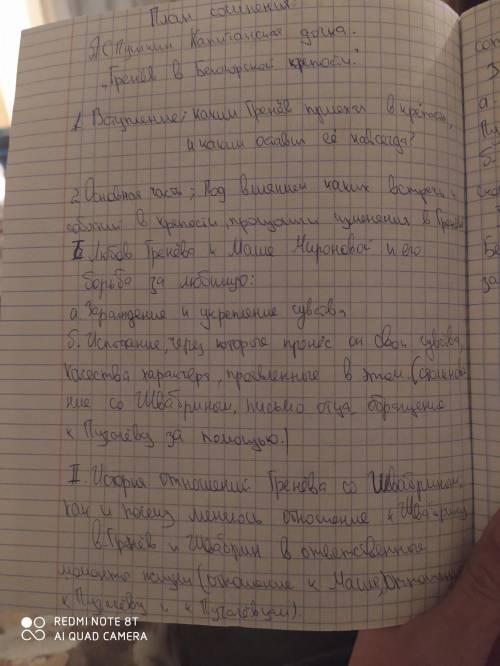 План сочинения.
А С Пушкин Капитанская дочка.
"Гринёв в Белогорской крепости."
1. Вступление: каким Гринёв приехал в крепость,
и каким оставил её навсегда?
2. Основная часть: Под влиянием каких встреч и
событий в крепости, произошли изменения в Гринёве
I Любовь Гринёва к Маше Мироновой и его
борьба за любимую:
а. Зарождение и укрепление чувств,
б. Испытание, через которые пронёс он свои чувства,
качества характера, проявленные в этом. (столкнове
ние со Швабриным, письмо отца, обращение
к Пугачёву за помощью.)
II. История отношений Гринёва со Швабриным,
как и почему менялось отношение к Швабрину
в. Гринёв и Швабрин в ответственные
моменты жизни (отношение к Маше, отношение
к Пугачёву и к Пугачёвцам)
REDMI NOTE 8T
AI QUAD CAMERA